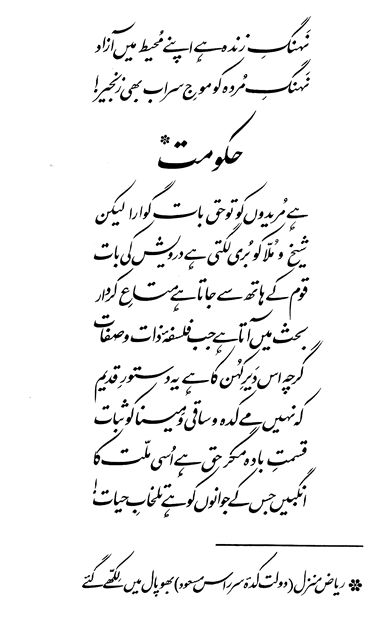 نَہنگِ زندہ ہے اپنے مُحیط میں آزاد
نَہنگِ مُردہ کو موجِ سراب بھی زنجیر!
حکومت*
ہے مُریدوں کو تو حق بات گوارا لیکن
شیخ و مُلّا کو بُری لگتی ہے درویش کی بات
قوم کے ہاتھ سے جاتا ہے متاعِ کردار
بحث میں آتا ہے جب فلسفۂ ذات و صفات
گرچہ اس دَیرِ کُہن کا ہے یہ دستورِ قدیم
کہ نہیں مے کدہ و ساقی و مِینا کو ثبات
قسمتِ بادہ مگر حق ہے اُسی ملّت کا
انگبیں جس کے جوانوں کو ہے تلخابِ حیات!
* ریاض منزل (دولت کدۂ سرراس مسعود) بھوپال میں لِکھّے گئے